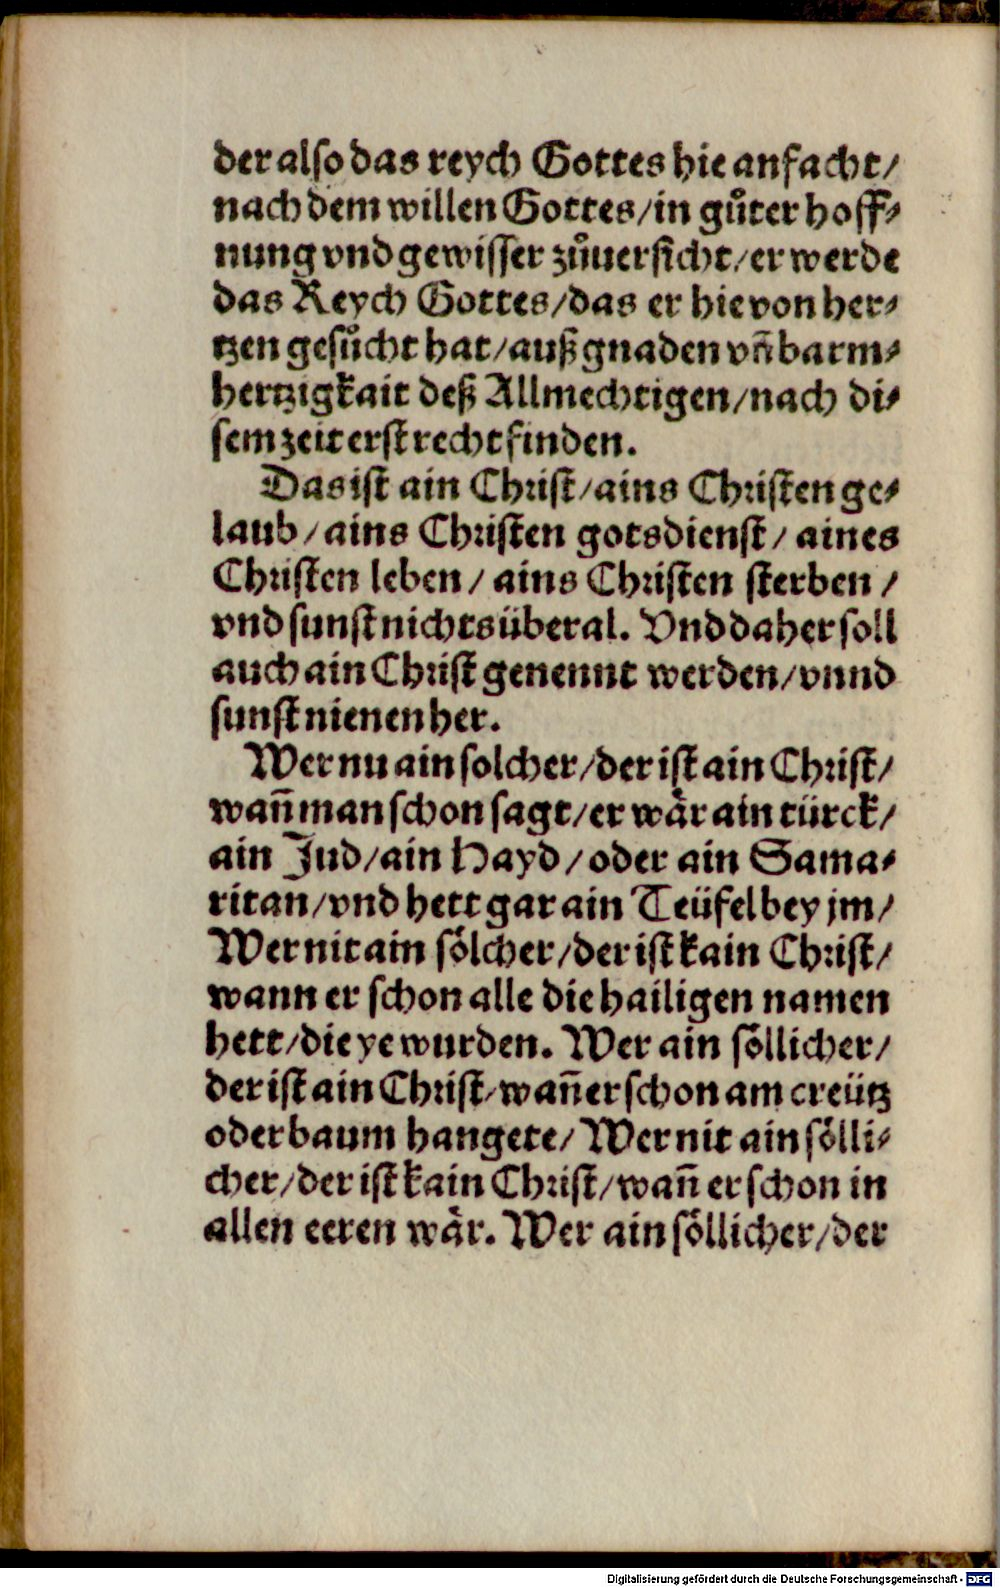 der also das reych Gottes hie anfacht/
nach dem willen Gottes/in gůter hoff⸗
nung vnd gewisser zůuersicht/er werde
das Reych Gottes/das er hie von her⸗
tzen gesůcht hat/auß gnaden vñ barm⸗
hertzigkait deß Allmechtigen/nach di⸗
sem zeit erst recht finden.
Das ist ain Christ/ains Christen ge⸗
laub/ains Christen gotsdienst/ aines
Christen leben/ ains Christen sterben/
vnd sunst nichts überal. Vnd daher soll
auch ain Christ genennt werden/vnnd
sunst nienen her.
Wer nu ain solcher/der ist ain Christ/
wañ man schon sagt/er wår ain türck/
ain Jud/ain Hayd/oder ain Sama⸗
ritan/vnd hett gar ain Teüfel bey jm/
Wer nit ain sölcher/der ist kain Christ/
wann er schon alle die hailigen namen
hett/die ye wurden. Wer ain söllicher/
der ist ain Christ/wañ er schon am creütz
oder baum hangete/Wer nit ain sölli⸗
cher/der ist kain Christ/wañ er schon in
allen eeren wår. Wer ain söllicher/der
Digitalisierung gefördert durch die Deutsche Forschungsgemeinschaft - DFG